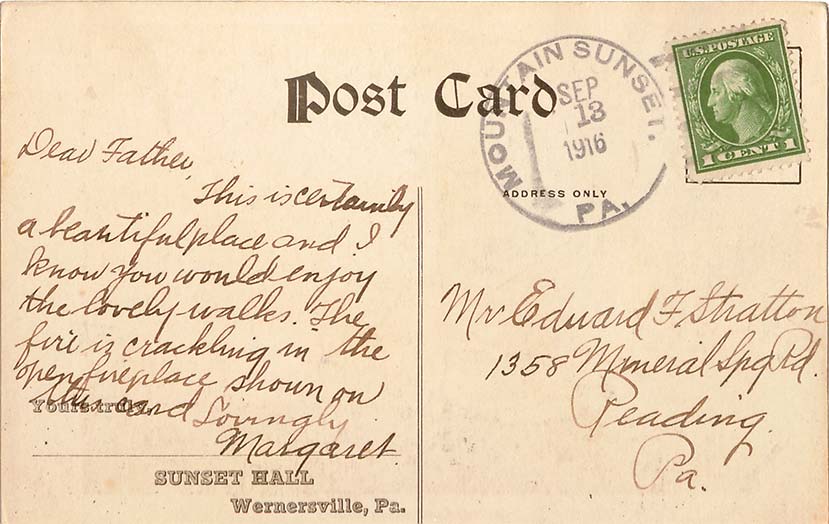 Post Card
MOUNTAIN SUNSET.
SEP
13
1916
PA.
U.S. POSTAGE
1 CENT 1
ADDRESS ONLY
Dear Father,
This is certainly
a beautiful place and I
know you would enjoy
the lovely walks. The
fire is crackling in the
open fireplace shown on
this card
Yours truly,
Lovingly
Margaret.
SUNSET HALL
Wernersville, Pa.
Mr Edward F Stratton
1358 Mineral Spg Rd.
Reading
Pa.